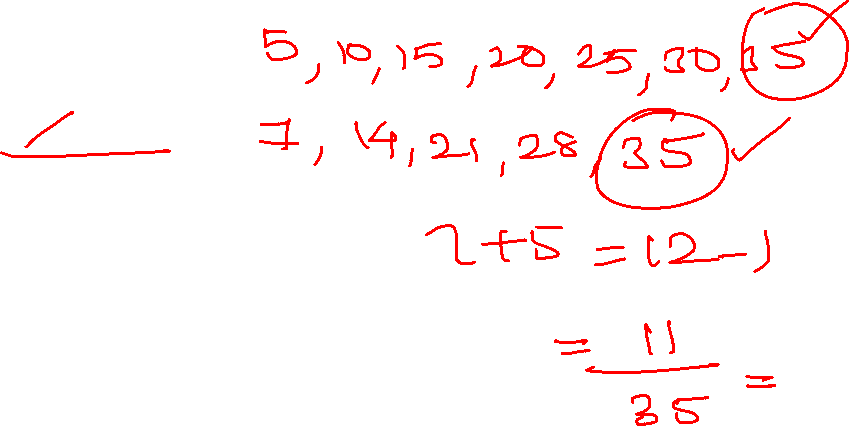 5, 10, 15, 20, 25, 30, 35
7, 14, 21, 28, 35
7+5 = 12-1
= 11/35 =